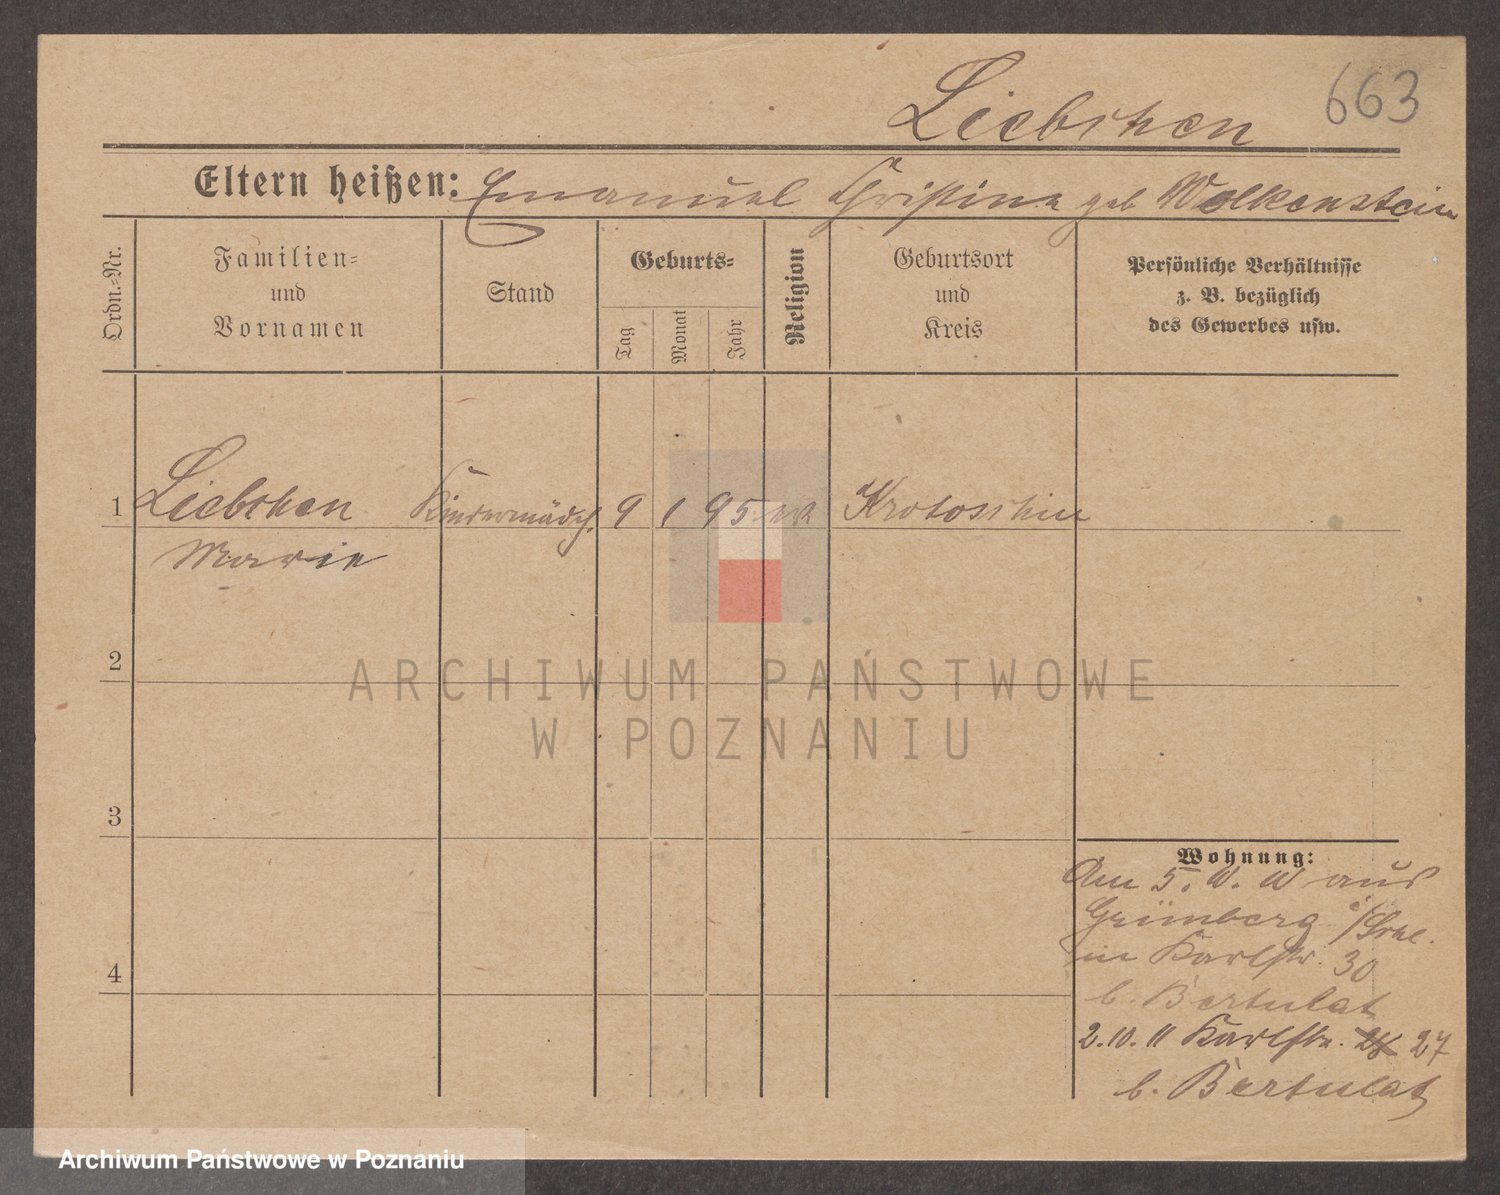 663
Liebchen
Eltern heißen: Emanuel Christina geb Wolkenstein
Ordn.=Nr.
Familien=
und
Vornamen
Stand
Geburts=
Tag
Monat
Jahr
Religion
Geburtsort
und
Kreis
Persönliche Verhältnisse
z. B. bezüglich
des Gewerbes usw.
1 Liebchen Kindermädch. 9 1 95 Krotoschin
Marie
2
3
4
Wohnung:
Am 5. aus
Grünberg
in Karlstr. 30
b. Bertulat
2.10.11 Karlstr. 28 27
b. Bertulat
ARCHIWUM PAŃSTWOWE
W POZNANIU
Archiwum Państwowe w Poznaniu